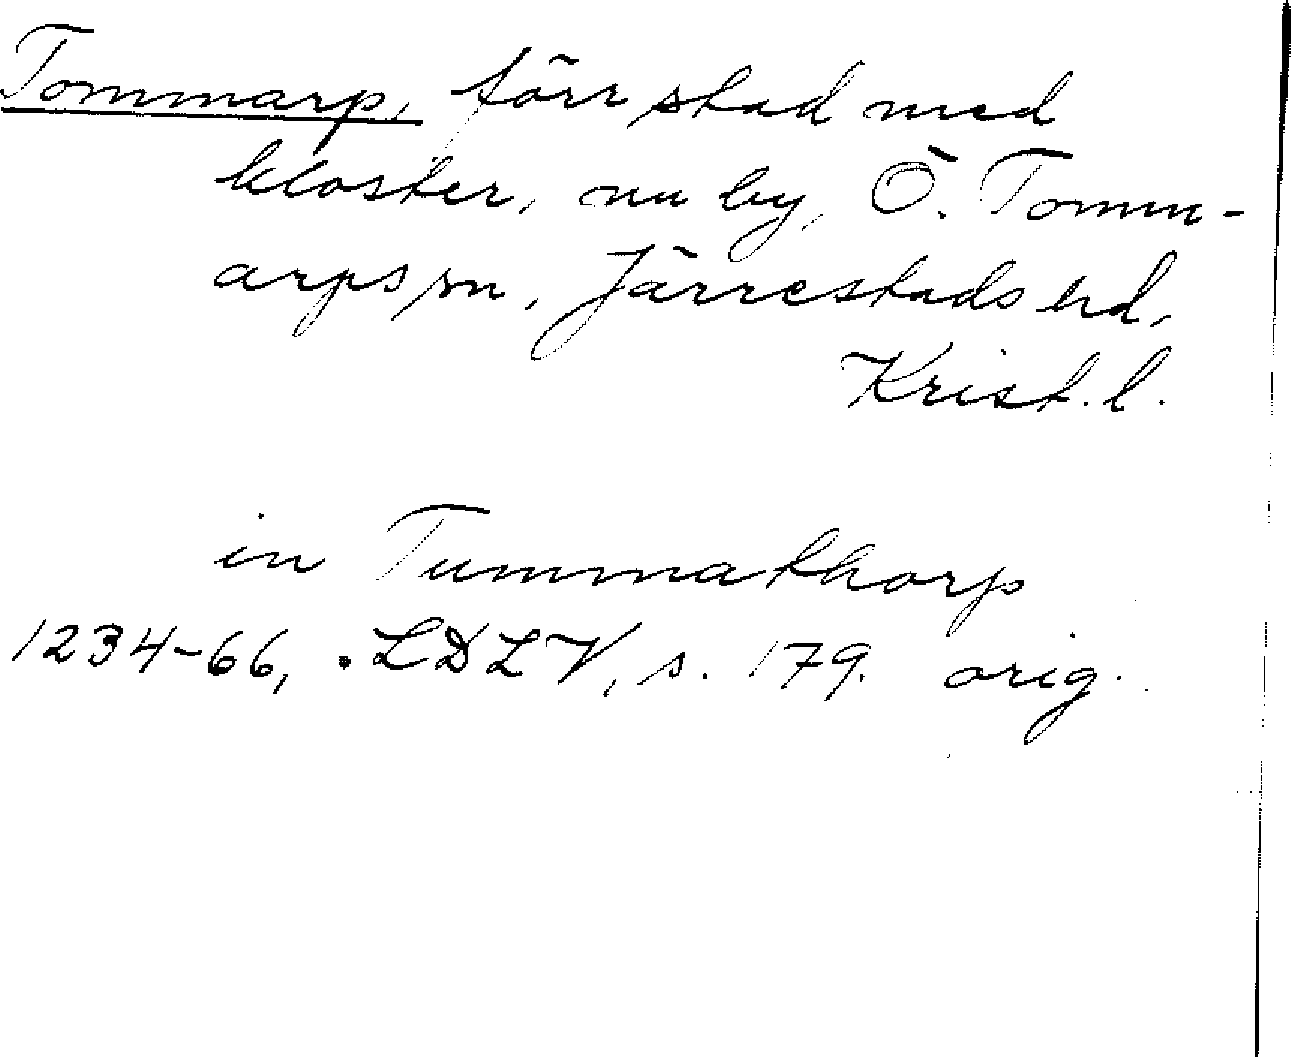 Tommarp, förr stad med
kloster, nu by, Ö. Tomm-
arps sn, Järrestads hd,
Krist. l.
in Tummathorp
1234-66, . LDLV, s. 179. orig.